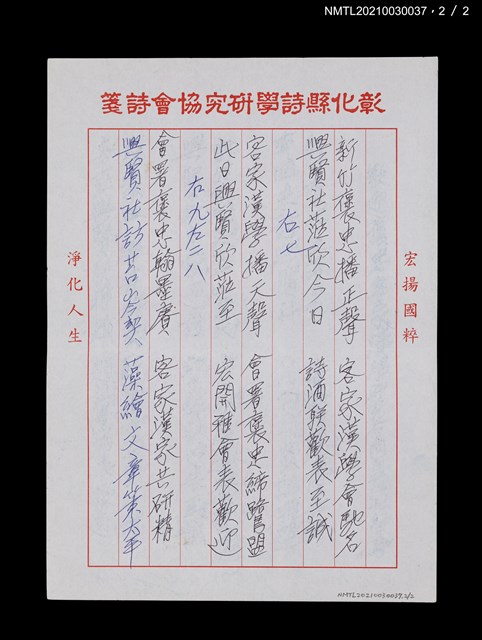 NMTL20210030037，2 / 2
彰化縣詩學研究協會詩箋
宏揚國粹
新竹褒忠播正聲 客家漢學會馳名
興賢社蒞欣今日 詩酒聯歡表至誠
右七
客家漢學播天聲 會署褒忠締鷺盟
此日興賢欣蒞至 宏開雅會表歡迎
右九左二八
會署褒忠翰墨賡 客家漢家共研精
興賢社訪苔岑契 藻繪文章
淨化人生
NMTL20210030037.2/2